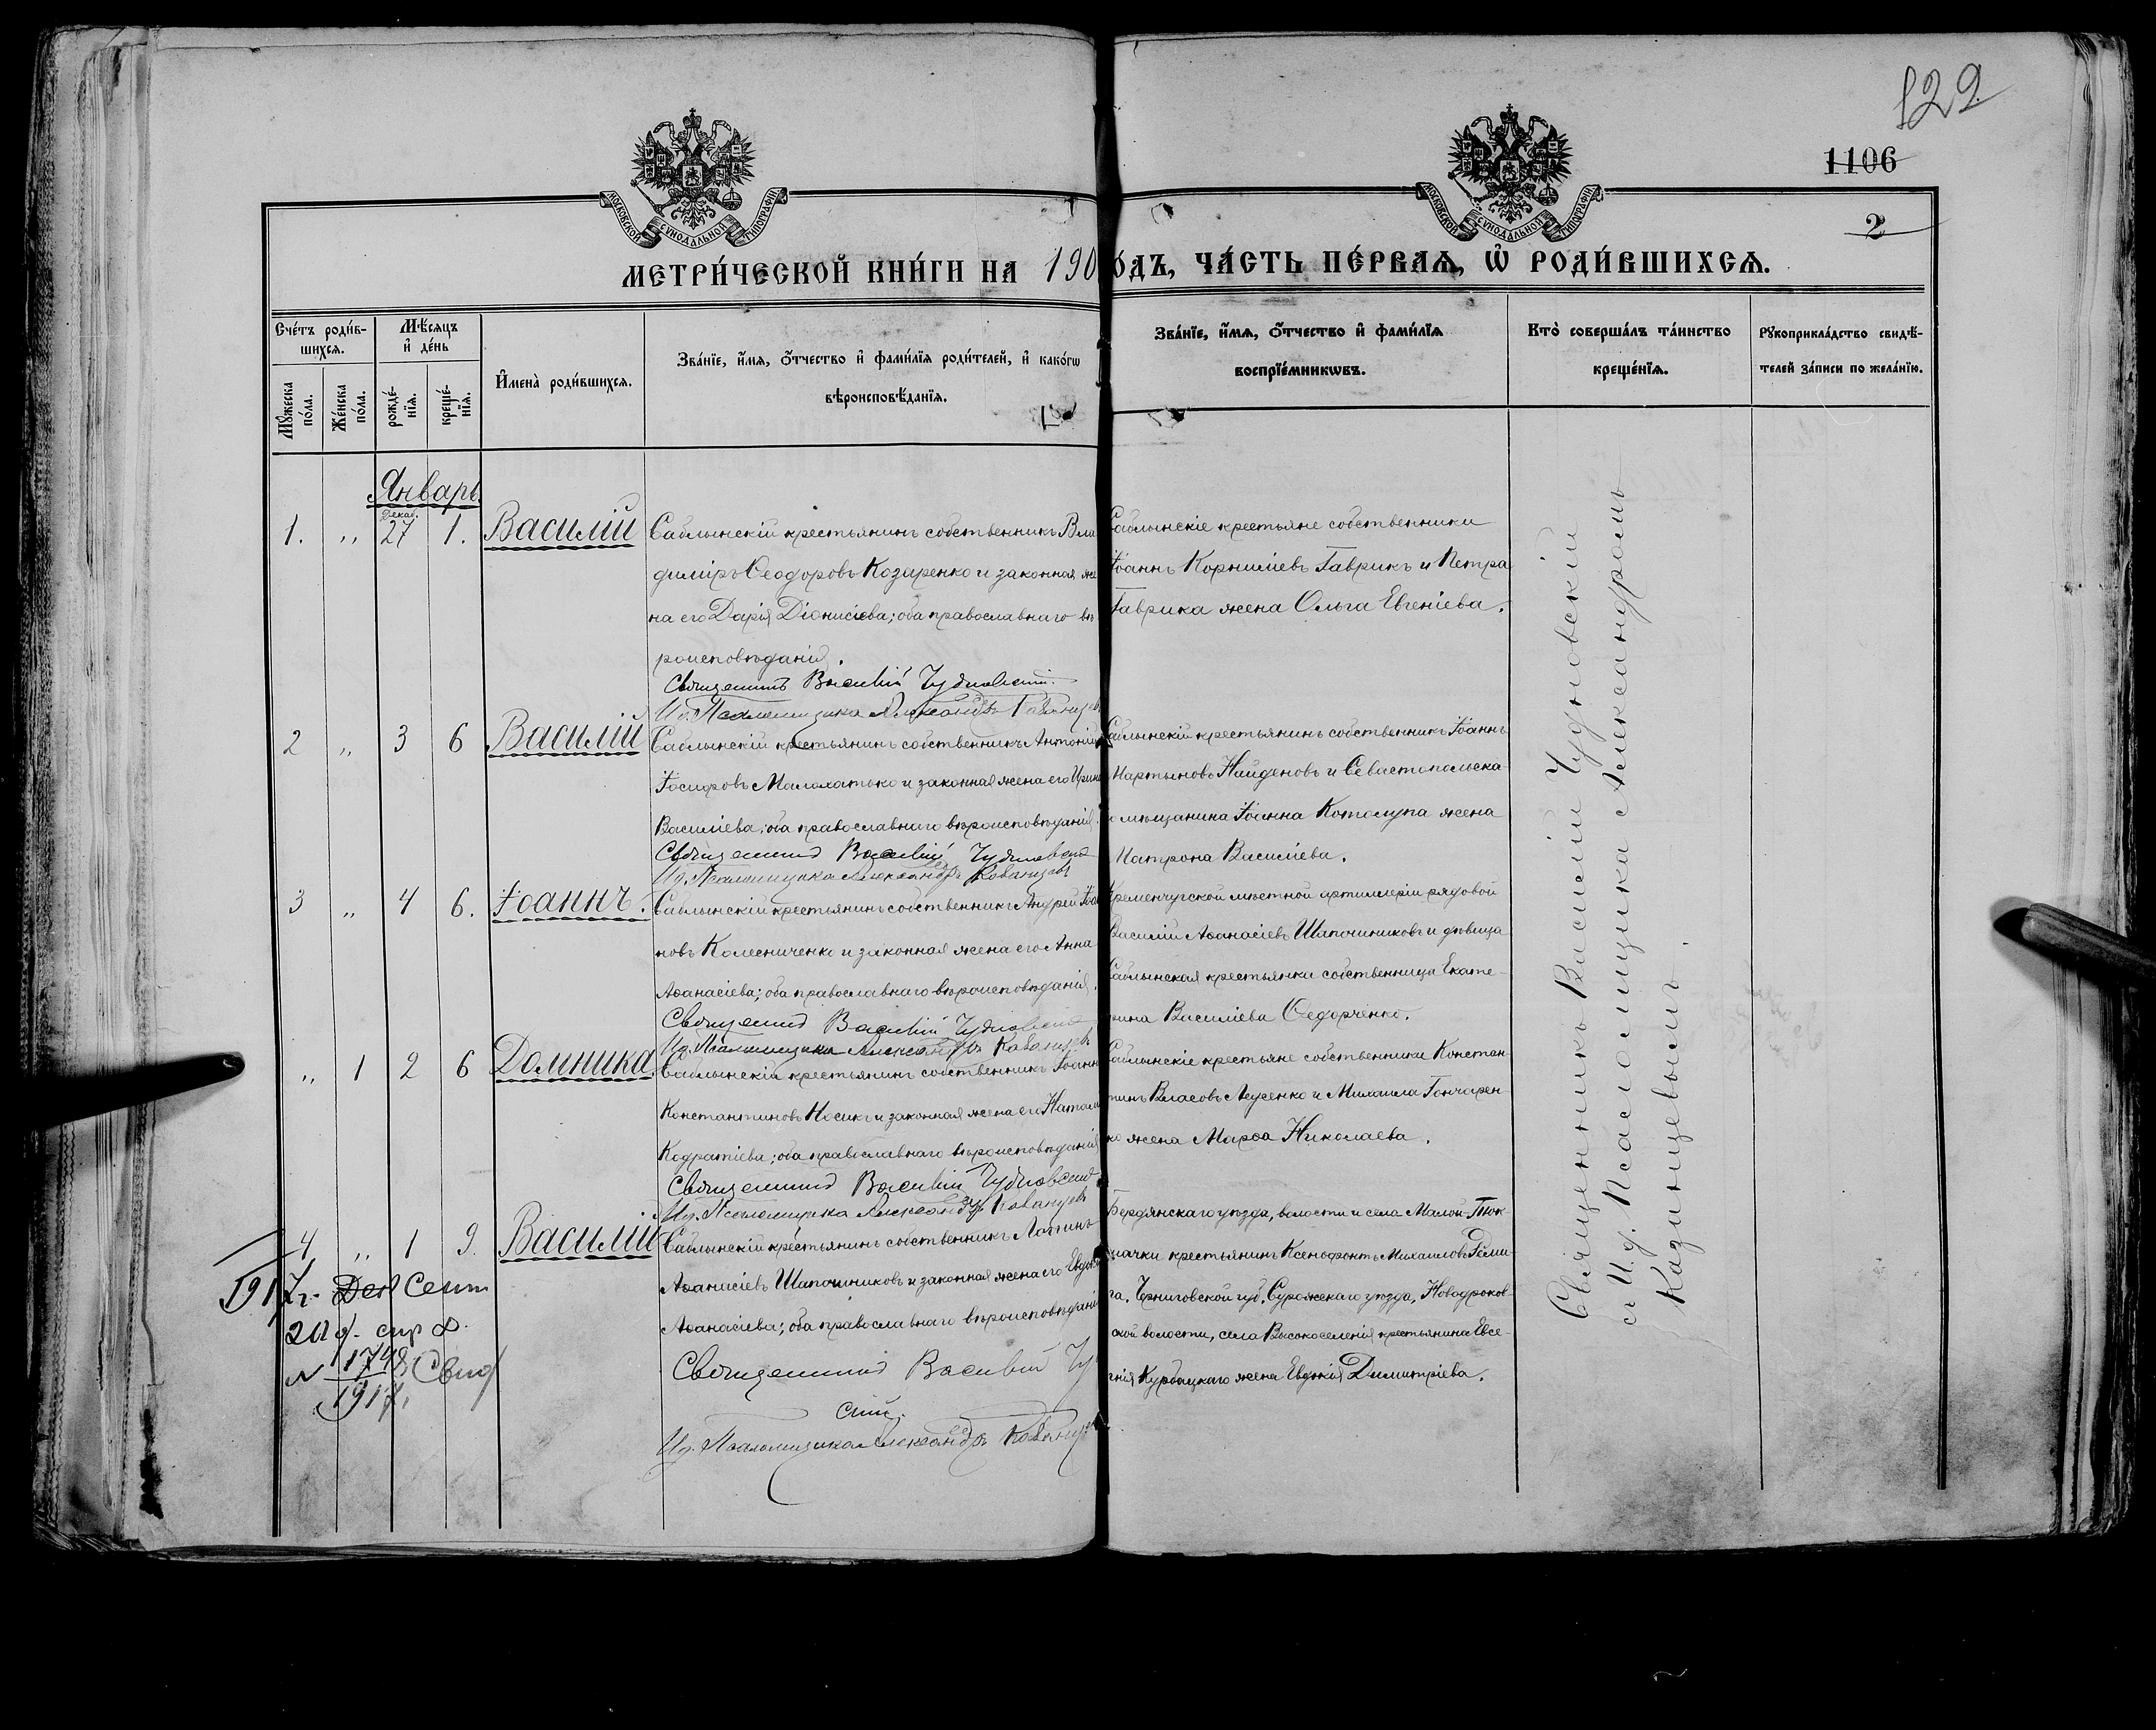 122
1106
2
МОСКОВСКОЙ СѴНОДАЛЬНОЙ ТИПОГРАФІИ
МОСКОВСКОЙ СѴНОДАЛЬНОЙ ТИПОГРАФІИ
МЕТРИ́ЧЕСКОЙ КНИ́ГИ НА 190
о́дъ, ЧА́СТЬ ПЕ́РВАѦ, Ѡ РОДИ́ВШИХСѦ.
Сче́тъ роди́вшихсѧ.
Мꙋ́жеска по́ла.
Же́нска по́ла.
Мѣ́сѧцъ и҆ де́нь
рожде́нїѧ.
креще́нїѧ.
И҆мена̀ роди́вшихсѧ.
Зва́нїе, и҆́мѧ, ѻ҆́тчество и҆ фами́лїѧ роди́телей, и҆ како́гѡ
вѣроисповѣ́данїѧ.
Зва́нїе, и҆́мѧ, ѻ҆́тчество и҆ фами́лїѧ
воспрїе́мникѡвъ.
Кто̀ соверша́лъ та́инство
креще́нїѧ.
Рꙋкоприкла́дство свидѣ́-
телей за́писи по жела́нїю.
Январь
Декаб.
1. „ 27 1. Василій
Саблынскій крестьянинъ собственникъ Вла
димiръ Ѳеодоровъ Козаренко и законная же
на его Дарія Діонисіева; оба православнаго вѣ
роисповѣданія.
Священникъ Василій Чудновскій.
И.д. Псаломщика Александръ Казанцевъ
Саблынскіе крестьяне собственники
Іоаннъ Корниліевъ Гаврикъ и Петра
Гаврика жена Ольга Евгеніева.
2 „ 3 6 Василій
Саблынскій крестьянинъ собственникъ Антоній
Іосифовъ Малохатько и законная жена его Ирина
Василіева; оба православнаго вѣроисповѣданія.
Священникъ Василій Чудновскій
И.д. Псаломщика Александръ Казанцевъ
Саблынскій крестьянинъ собственникъ Іоаннъ
Мартыновъ Найденовъ и Севастопольска
го мѣщанина Іоанна Котолупа жена
Матрона Василіева.
3 „ 4 6. Іоаннъ.
Саблынскій крестьянинъ собственникъ Андрей Іоан
новъ Колесниченко и законная жена его Анна
Аѳанасіева; оба православнаго вѣроисповѣданія.
Священникъ Василій Чудновскій
И.д. Псаломщика Александръ Казанцевъ
Кременчугской мѣстной артиллеріи рядовой
Василій Аѳанасіевъ Шапочниковъ и дѣвица
Саблынская крестьянка собственница Екате-
рина Василіева Ѳедорченко.
„ 1 2 6 Домника.
Саблынскій крестьянинъ собственникъ Іоаннъ
Константиновъ Носикъ и законная жена его Натал
Кодратіева; оба православнаго вѣроисповѣданія
Священникъ Василій Чудновскій
И.д. Псаломщика Александръ Казанцевъ
Саблынскіе крестьяне собственники Констан-
тинъ Власовъ Лусенко и Михаила Гончарен
ко жена Марѳа Николаева.
4 „ 1 9. Василій
Саблынскій крестьянинъ собственникъ Логинъ
Аѳанасіевъ Шапочниковъ и законная жена его Евдок
Аѳанасіева; оба православнаго вѣроисповѣданія
Священникъ Василій Чу
скій.
И.д. Псаломщика Александръ Казанцевъ
Бердянскаго уѣзда, волости и села Малой Ток-
мачки крестьянинъ Ксенофонтъ Михаиловъ
га. Черниговской губ. Суражскаго уѣзда, Новодроков-
ской волости, села Высокоселенія крестьянина Евсе-
нія Курбацкаго жена Евдокія Димитріева.
1917 г. Сент
20 д.
№ 1748 Свид
1917 г.
Священникъ Василій Чудновскій
съ И.д. Псаломщика Александромъ
Казанцевымъ.